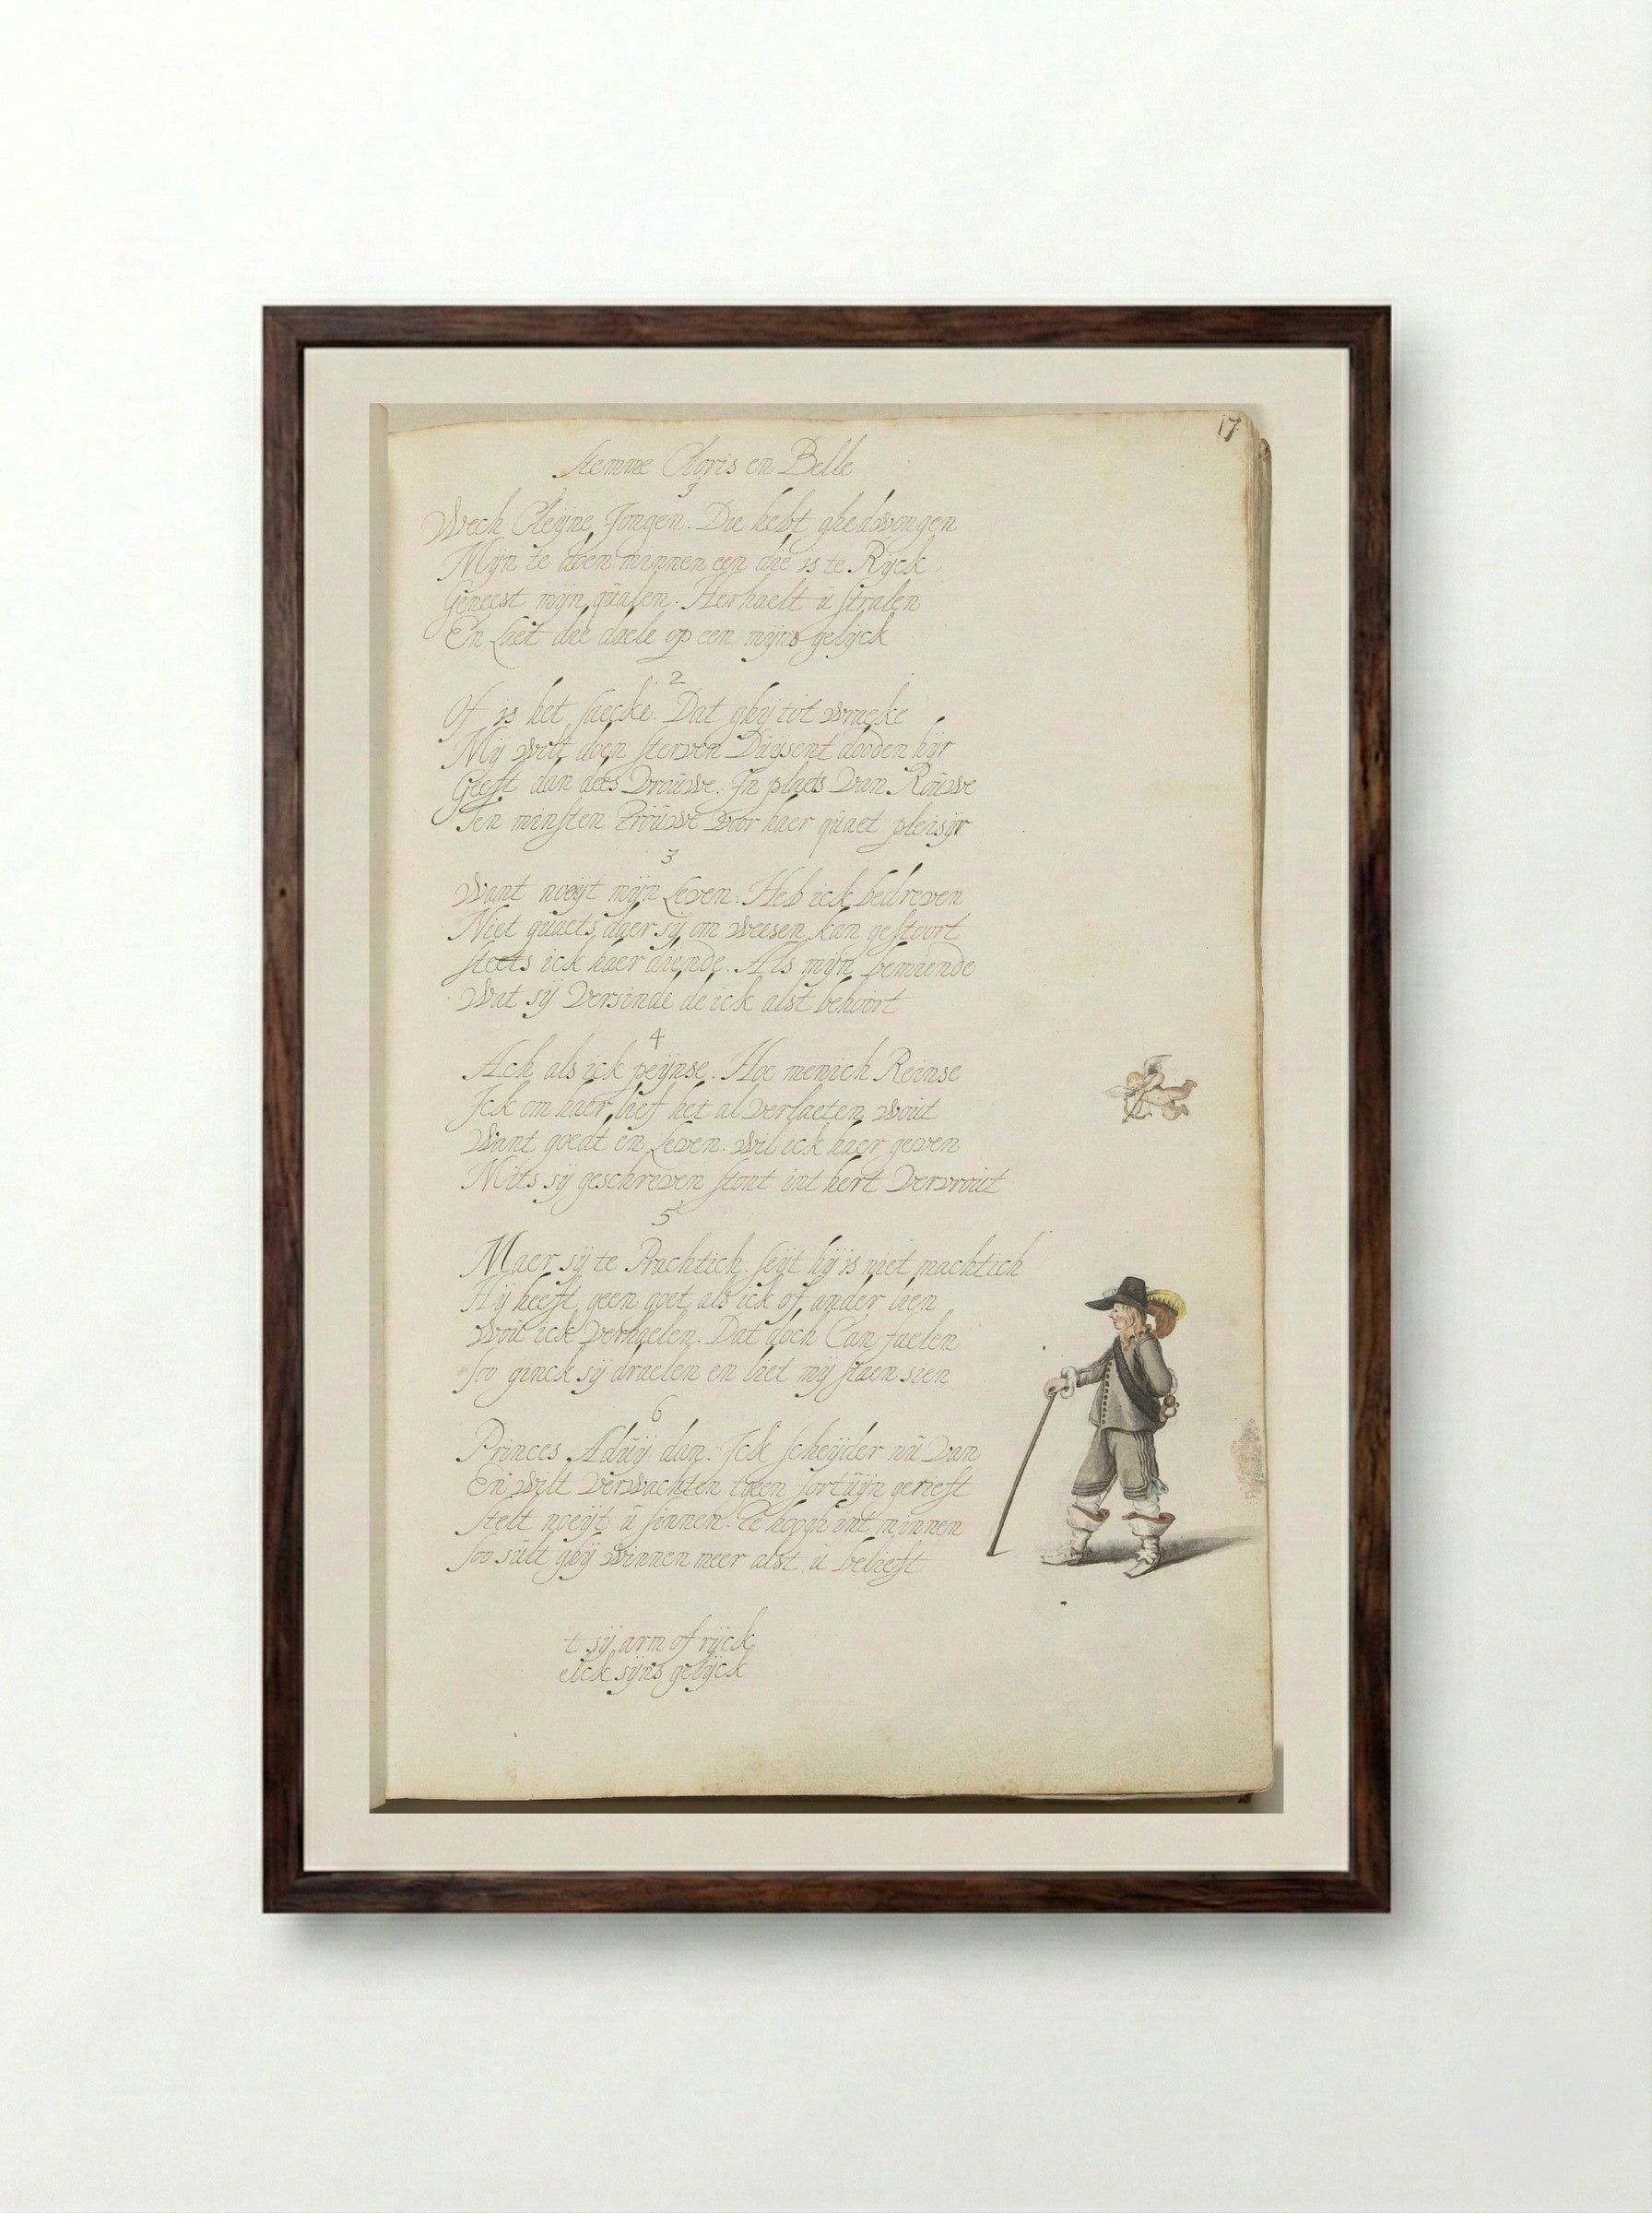 17
Stemme Cloris en Belle
Wech Cleÿne Jongen. Die hebt ghedwongen
Mÿn te doen minnen een die is te Rÿck
Geneest mÿn qualen. Herhaelt ŭ stralen
En Laet die daele op een mÿns gelÿck
2
Of is het saecke. Dat ghÿ tot wraeke
Mÿ wilt doen sterven Dŭÿsent dooden hÿr
Geeft dan dees Vroŭwe. In plaets van Roŭwe
Ten minsten Troŭwe voor haer qŭaet pleisÿr
3
Want noeÿt mÿn Leven. Heb ick bedreven
Niet qŭaets daer sÿ om weesen kan gestoort
Steets ick haer diende. Als mÿn beminde
Wat sÿ versinde de ick alst behoort
4
Ach als ick peÿnse. Hoe menich Reinse
Ick om haer lief het al verlaeten woŭt
Want goedt en Leven. wil ick haer geven
Mits sÿ geschreven stont int hert vervroŭt
5
Maer sÿ te Prachtich. seÿt hÿ is niet machtich
Hÿ heeft geen goet als ick of ander lien
Woŭ ick verhaelen. Dat doch Can faelen
soo ginck sÿ draelen en liet mÿ staen sien
6
Princes Adŭÿ dan. Ick scheÿder nŭ van
En wilt verwachten tgeen fortŭÿn gerieft
Stelt noeÿt ŭ sinnen. Te hoogh int minnen
soo sŭlt ghÿ winnen meer alst ŭ belieft
t sÿ arm of rÿck
elck sÿns gelÿck